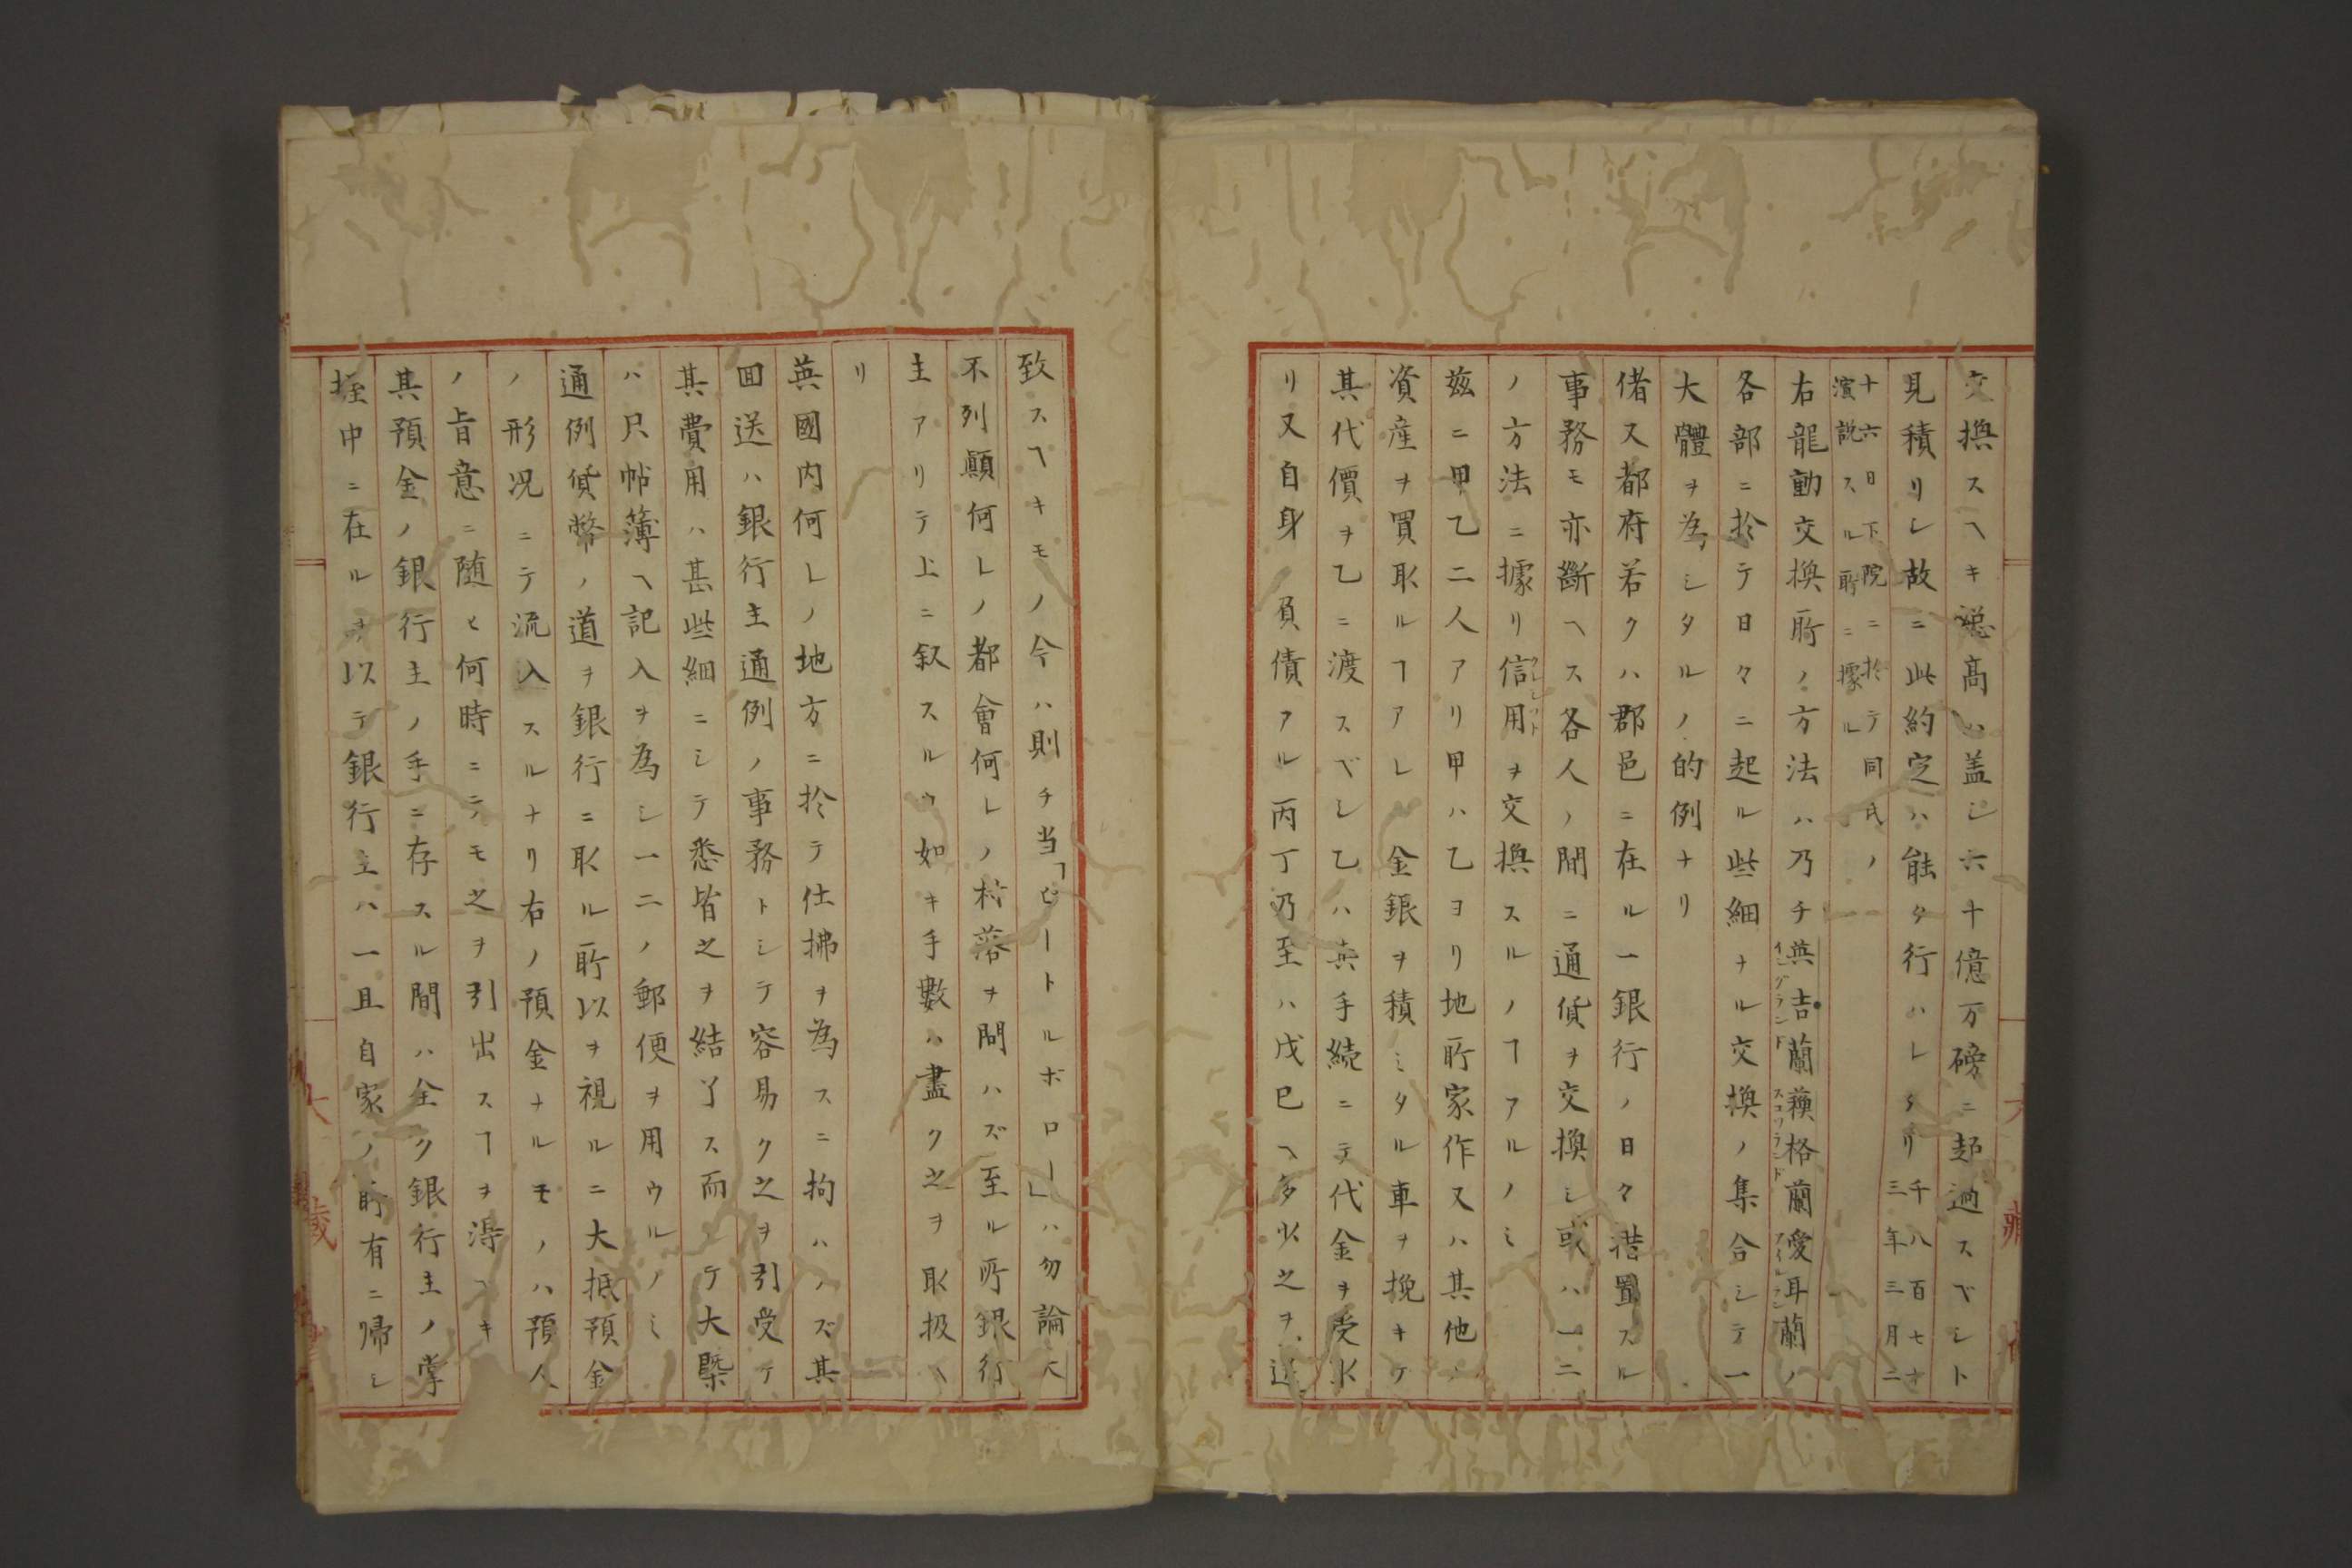 交換スヘキ総高ハ盖シ六十億万磅ニ超過スベシト
見積リシ故ニ此約定ハ能ク行ハレタリ千八百七十三年三月二
十六日下院ニ於テ同氏ノ演説スル所ニ據ル
右龍動交換所ノ方法ハ乃チ英吉蘭蘓格蘭愛耳蘭ノ
イングランド スコツランド アイルラン
各部ニ於テ日々ニ起ル些細ナル交換ノ集合シテ一
大體ヲ為シタルノ的例ナリ
偖又都府若クハ郡邑ニ在ル一銀行ノ日々措置スル
事務モ亦斷ヘス各人ノ間ニ通貨ヲ交換シ或ハ一二
ノ方法ニ據リ信用ヲ交換スルノヿアルノミ
クレジツト
茲ニ甲乙二人アリ甲ハ乙ヨリ地所家作又ハ其他ノ
資産ヲ買取ルヿアレ金銀ヲ積ミタル車ヲ挽キテ
其代價ヲ乙ニ渡スベシ乙ハ其手続ニテ代金ヲ受取
リ又自身ノ負債アル丙丁乃至ハ戊巳ヘ多少之ヲ送
致スヘキモノ今ハ則チ当「ピートルボロー」ハ勿論大
不列顛何レノ都會何レノ村落ヲ問ハズ至ル所銀行
主アリテ上ニ叙スルヿ如キ手數ハ盡ク之ヲ取扱ヘ
リ
英國内何レノ地方ニ於テ仕拂ヲ為スニ拘ハノズ其
回送ハ銀行主通例ノ事務トシテ容易ク之ヲ引受ケ
其費用ハ甚些細ニシテ悉皆之ヲ結了ス而シテ大槩
ハ只帖簿ヘ記入ヲ為シ一二ノ郵便ヲ用ウルノミ
通例貨幣ノ道ヲ銀行ニ取ル所以ヲ視ルニ大抵預金
ノ形况ニテ流入スルナリ右ノ預金ナルモノハ預人
ノ旨意ニ随ヒ何時ニテモ之ヲ引出スヿヲ得ヘキ
其預金ノ銀行主ノ手ニ存スル間ハ全ク銀行主ノ掌
握中ニ在ルヲ以テ銀行主ハ一旦自家ノ所有ニ帰シ
大藏省